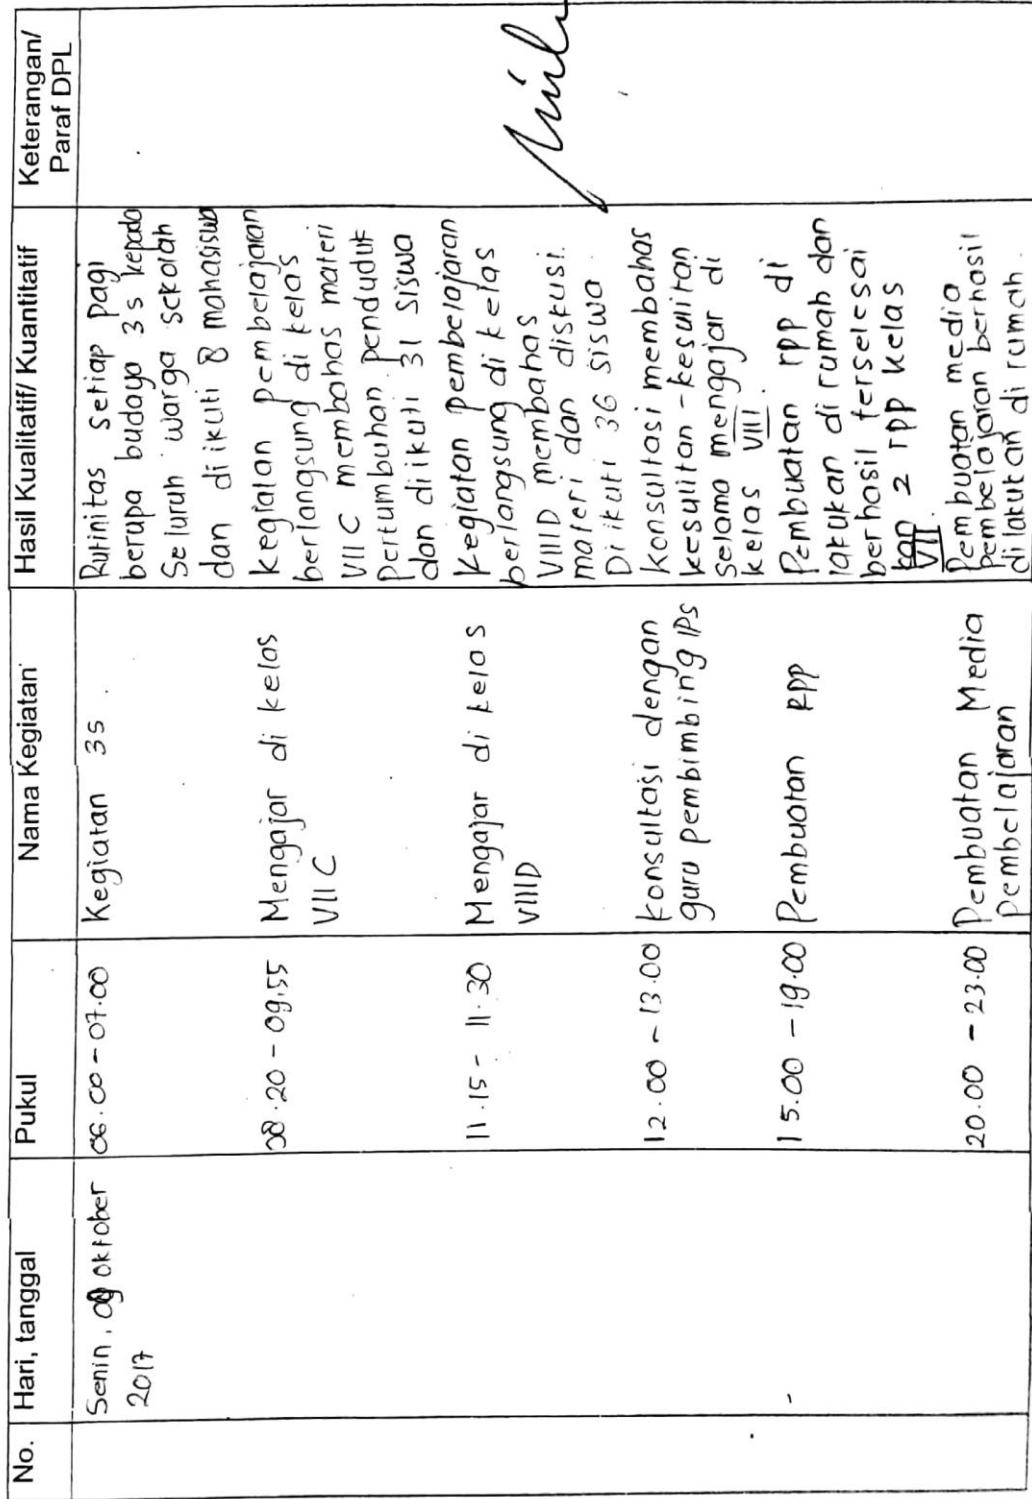 No.
Hari, tanggal
Pukul
Nama Kegiatan
Hasil Kualitatif/ Kuantitatif
Keterangan/
Paraf DPL
Senin, 09 Oktober
2017
06.00 - 07.00
Kegiatan 3S.
Rutinitas setiap pagi
berupa budaya 3s kepada
Seluruh warga sekolah
dan diikuti 8 mahasiswa
08.20 - 09.55
Mengajar di kelas
VII C
kegiatan pembelajaran
berlangsung di kelas
VII C membahas materi
Pertumbuhan penduduk
dan diikuti 31 siswa
11.15 - 11.30
Mengajar di kelas
VIIID
Kegiatan pembelajaran
berlangsung di kelas
VIIID membahas
materi dan diskusi.
Diikuti 36 siswa.
12.00 - 13.00
Konsultasi dengan
guru pembimbing IPS
Konsultasi membahas
kesulitan-kesulitan
selama mengajar di
kelas VIII.
15.00 - 19.00
Pembuatan RPP
Pembuatan rpp di
lakukan di rumah dan
berhasil terselesai
kan 2 rpp kelas
VII.
20.00 - 23.00
Pembuatan Media
Pembelajaran
Pembuatan media
pembelajaran berhasil
dilakukan di rumah.